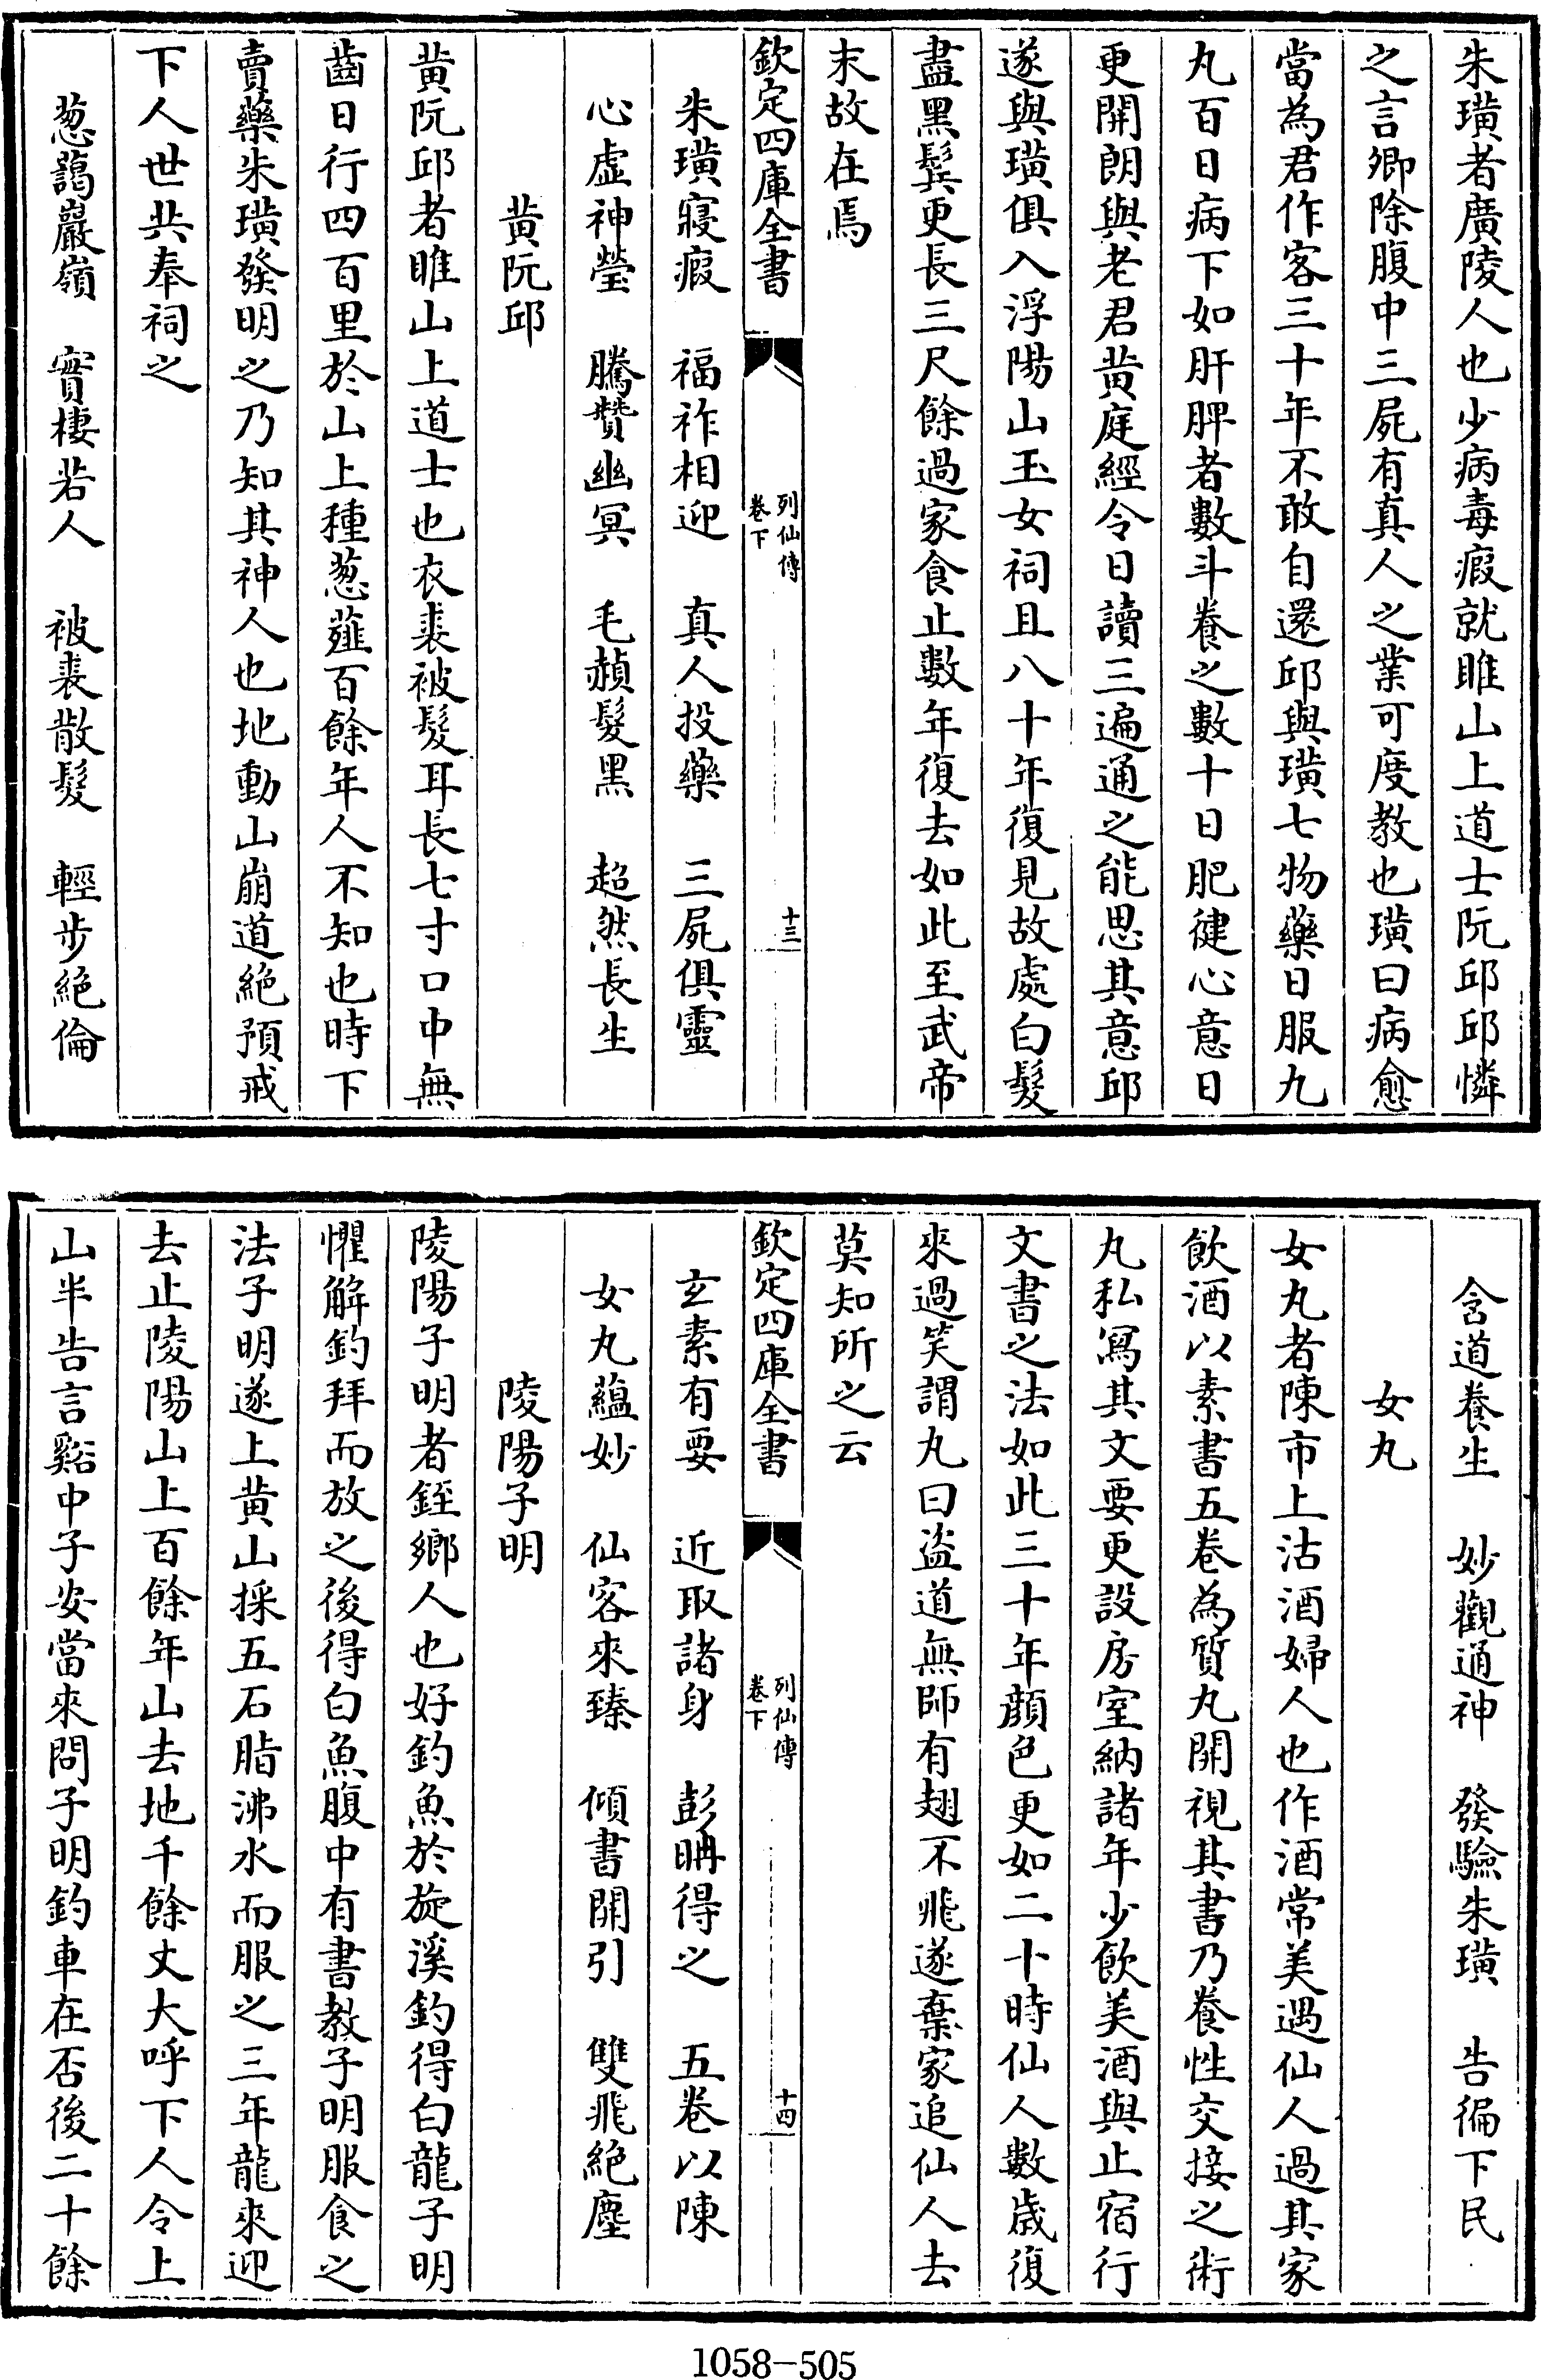 朱璜者廣陵人也少病毒瘕就睢山上道士阮邱邱憐
之言卿除腹中三屍有真人之業可度教也璜曰病愈
當為君作客三十年不敢自還邱與璜七物藥日服九
丸百日病下如肝脾者數斗養之數十日肥健心意日
更開朗與老君黄庭經令日讀三遍通之能思其意邱
遂與璜俱入浮陽山玉女祠且八十年復見故處白髮
盡黑鬓更長三尺餘過家食止數年復去如此至武帝
末故在焉
欽定四庫全書
列仙傳
卷下
十三
朱璜寢瘕 福祚相迎 真人投藥 三屍俱靈
心虚神瑩 騰贊幽冥 毛赬髮黑 超然長生
黄阮邱
黄阮邱者睢山上道士也衣裘被髮耳長七寸口中無
齒日行四百里於山上種葱薤百餘年人不知也時下
賣藥朱璜發明之乃知其神人也地動山崩道絶預戒
下人世共奉祠之
葱藹巖嶺 實棲若人 被裘散髮 輕步絶倫
含道養生 妙觀通神 發驗朱璜 告徧下民
女丸
女丸者陳市上沽酒婦人也作酒常美遇仙人過其家
飲酒以素書五卷為質丸開視其書乃養性交接之術
丸私寫其文要更設房室納諸年少飲美酒與止宿行
文書之法如此三十年顔色更如二十時仙人數歲復
來過笑謂丸曰盗道無師有翅不飛遂棄家追仙人去
莫知所之云
欽定四庫全書
列仙傳
卷下
十四
玄素有要 近取諸身 彭𥅆得之 五卷以陳
女丸藴妙 仙客來臻 傾書開引 雙飛絶塵
陵陽子明
陵陽子明者銍鄉人也好釣魚於旋溪釣得白龍子明
懼解釣拜而放之後得白魚腹中有書教子明服食之
法子明遂上黄山採五石脂沸水而服之三年龍來迎
去止陵陽山上百餘年山去地千餘丈大呼下人令上
山半告言谿中子安當來問子明釣車在否後二十餘
1058-505